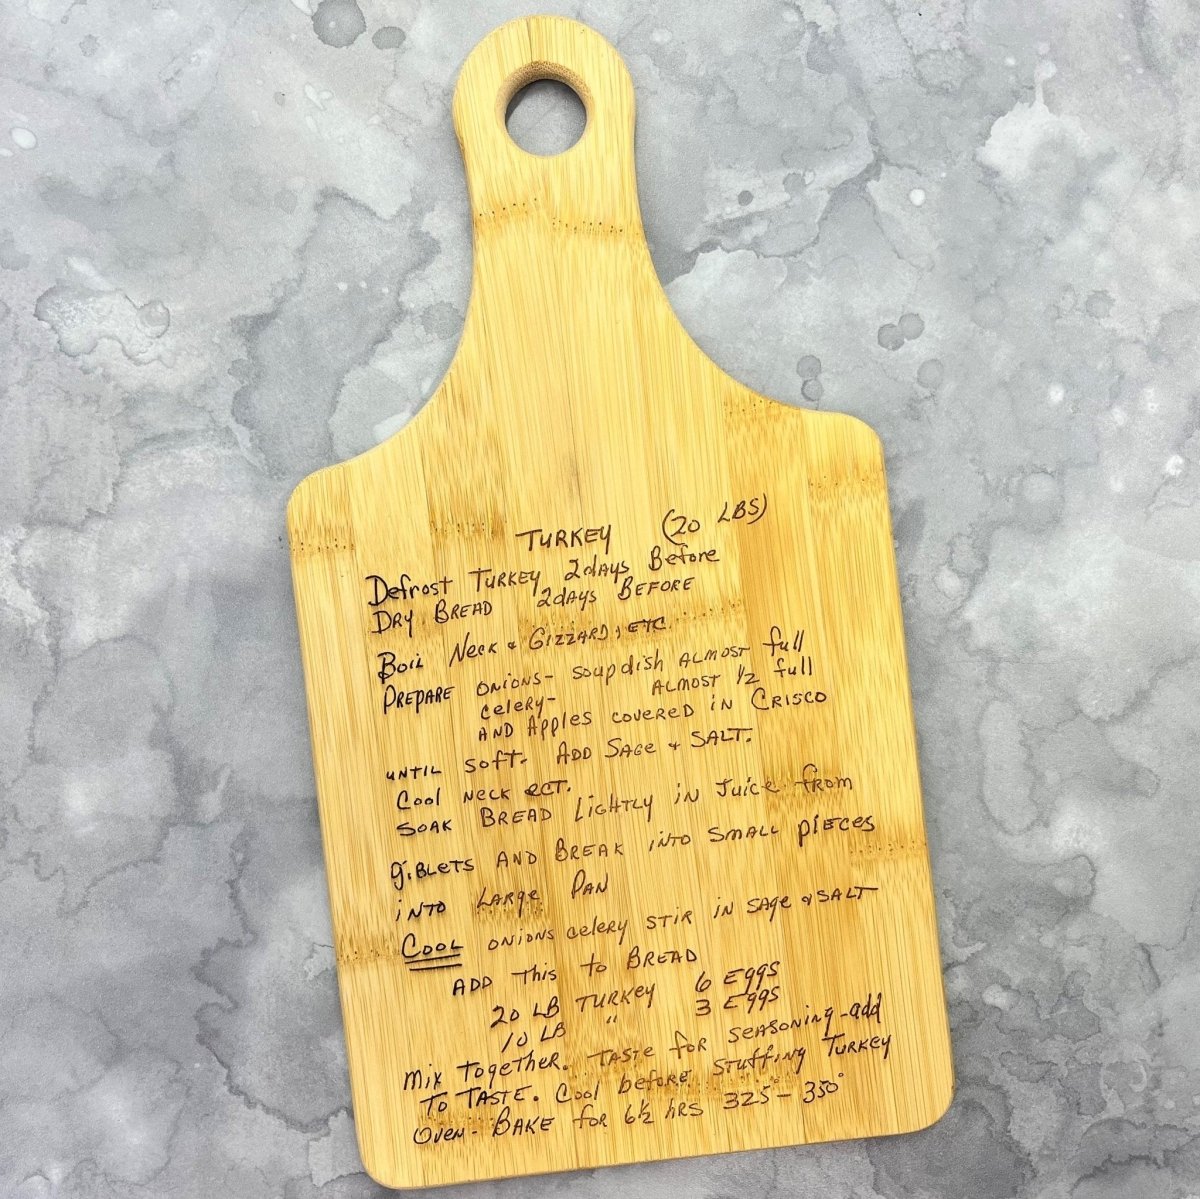 TURKEY (20 LBS)
Defrost TURKEY 2 dAYS Before
DRY BREAD 2 dAYS BEFORE
Boil Neck & GIZZARD, ETC
PREPARE ONIONS- SOUP dish ALMOST full
celeRY- ALMOST 1/2 full
AND Apples COVERED iN CRISCO
UNTIL SOFT. ADD SAGE & SALT.
Cool NECK ECT.
SOAK BREAD LiGHTLY iN Juice from
giBLETS AND BREAK iNTO SMALL pieces
iNTO LARge PAN
COOL ONIONS celeRy STiR iN SAge & SALT
ADD This to BREAD
20 LB TURKEY 6 Eggs
10 LB " 3 Eggs
Mix TogetHeR. TASTe foR SEASONiNg-add
To TASTE. Cool before STuffiNg TuRKey
Oven- BAKE foR 6½ hRS 325°- 350°